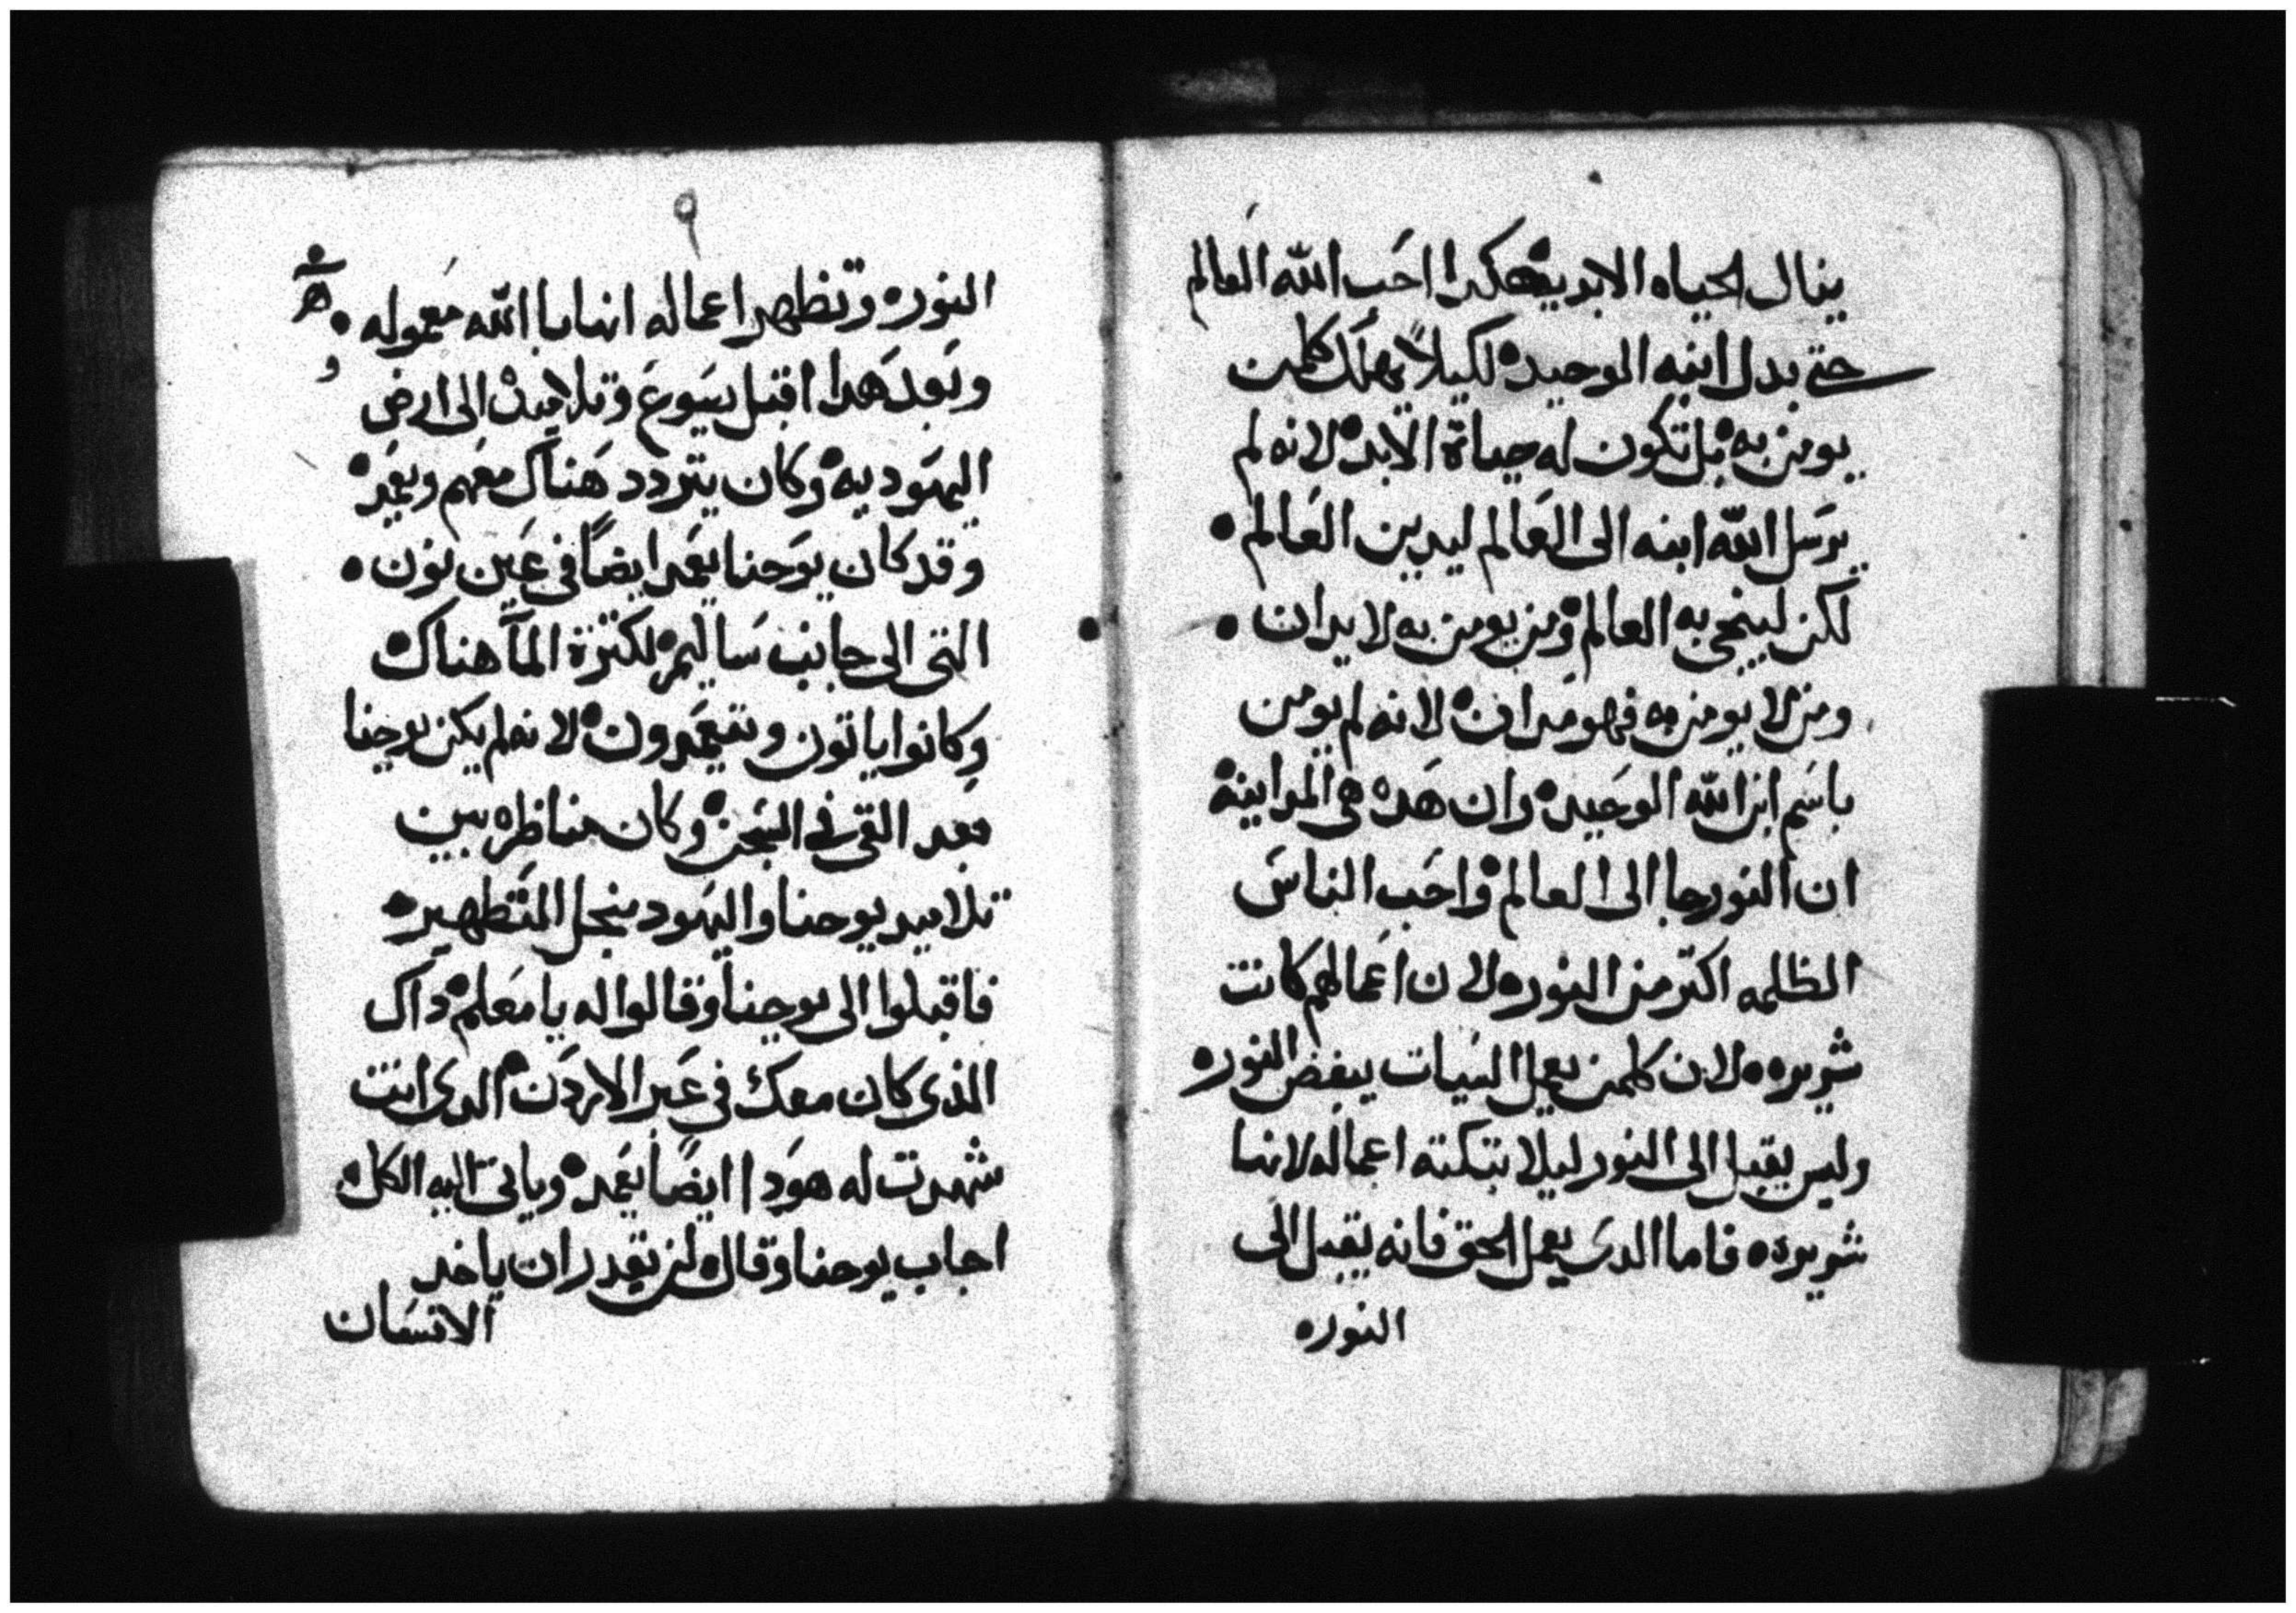 ينال الحياه الابديه هكدا احب الله العالم
حتى بدل ابنه الوحيد لكيلا يهلك كلمن
يومن به بل تكون له حياة الابد لانه لم
يرسل الله ابنه الى العالم ليدين العالم
لكن لينجى به العالم ومن يومن به لا يدان
ومن لا يومن به فهو مدان لانه لم يومن
باسم ابن الله الوحيد وان هده هى المداينة
ان النور جا الى العالم واحب الناس
الظلمه اكتر من النور لان اعمالهم كانت
شريره لان كلمن يعمل السيات يبغض النور
وليس يقبل الى النور ليلا تبكته اعماله لانها
شريره فاما الدى يعمل الحق فانه يقبل الى
النور
٩
النور وتظهر اعماله انها بالله معموله
وبعد هدا اقبل يسوع وتلاميده الى ارض
اليهوديه وكان يتردد هناك معهم ويعمد
وقد كان يوحنا يعمد ايضا في عين نون
التى الى جانب ساليم لكترة المآ هناك
وكانوا ياتون ويتعمدون لانه لم يكن يوحنا
بعد القى فى السجن وكان مناظره بين
تلاميد يوحنا واليهود منجل التطهير
فاقبلوا الى يوحنا وقالوا له يا معلم داك
الذى كان معك في عبر الاردن الدى انت
شهدت له هودا ايضا يعمد وياتى اليه الكل
اجاب يوحنا وقال لن يقدر ان ياخد
الانسان